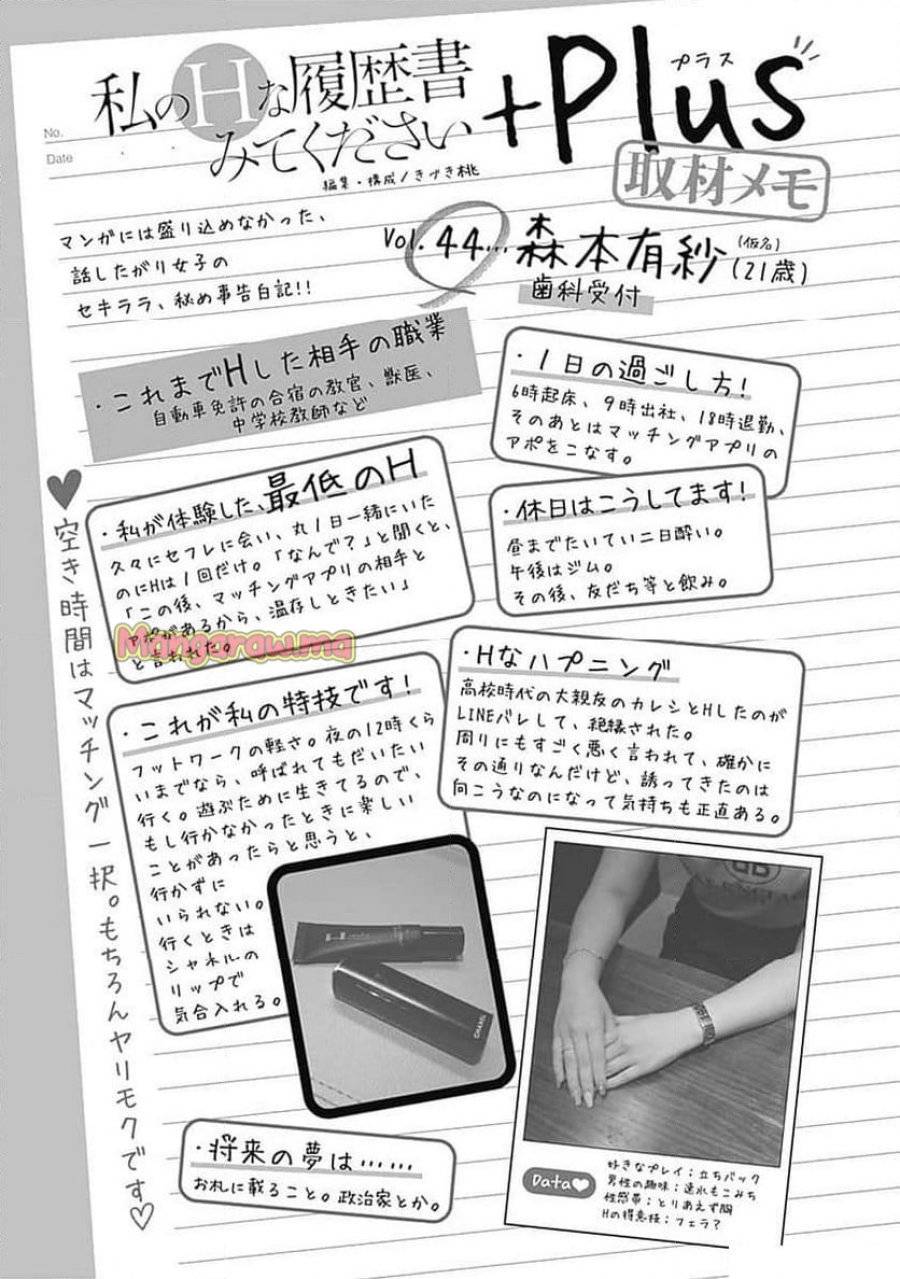 私のHな履歴書
みてください
+Plus
プラス
取材メモ
No.
Date
編集・構成/きづき桃
マンガには盛り込めなかった、
話したがり女子の
セキララ、秘め事告白記!!
Vol. 44… 森本有紗 (仮名) (21歳)
歯科受付
・これまでHした相手の職業
自動車免許の合宿の教官、獣医、
中学校教師など
・1日の過ごし方!
6時起床、9時出社、18時退勤、
そのあとはマッチングアプリの
アポをこなす。
・私が体験した、最低のH
久々にセフレに会い、丸1日一緒にいた
のにHは1回だけ。「なんで?」と聞くと、
「この後、マッチングアプリの相手と
アポがあるから、温存しときたい」
と言われた。
Mangaraw.ma
・休日はこうしてます!
昼までたいてい二日酔い。
午後はジム。
その後、友だち等と飲み。
・Hなハプニング
高校時代の大親友のカレシとHしたのが
LINEバレして、絶縁された。
周りにもすごく悪く言われて、確かに
その通りなんだけど、誘ってきたのは
向こうなのになって気持ちも正直ある。
・これが私の特技です!
フットワークの軽さ。夜の12時くら
いまでなら、呼ばれてもだいたい
行く。遊ぶために生きてるので、
もし行かなかったときに楽しい
ことがあったらと思うと、
行かずに
いられない。
行くときは
シャネルの
リップで
気合入れる。
CHANEL
♥空き時間はマッチング一択。もちろんヤリモクです♡
・将来の夢は……
お札に載ること。政治家とか。
Data♥
好きなプレイ:立ちバック
男性の趣味:速水もこみち
性感帯:とりあえず胸
Hの得意技:フェラ?